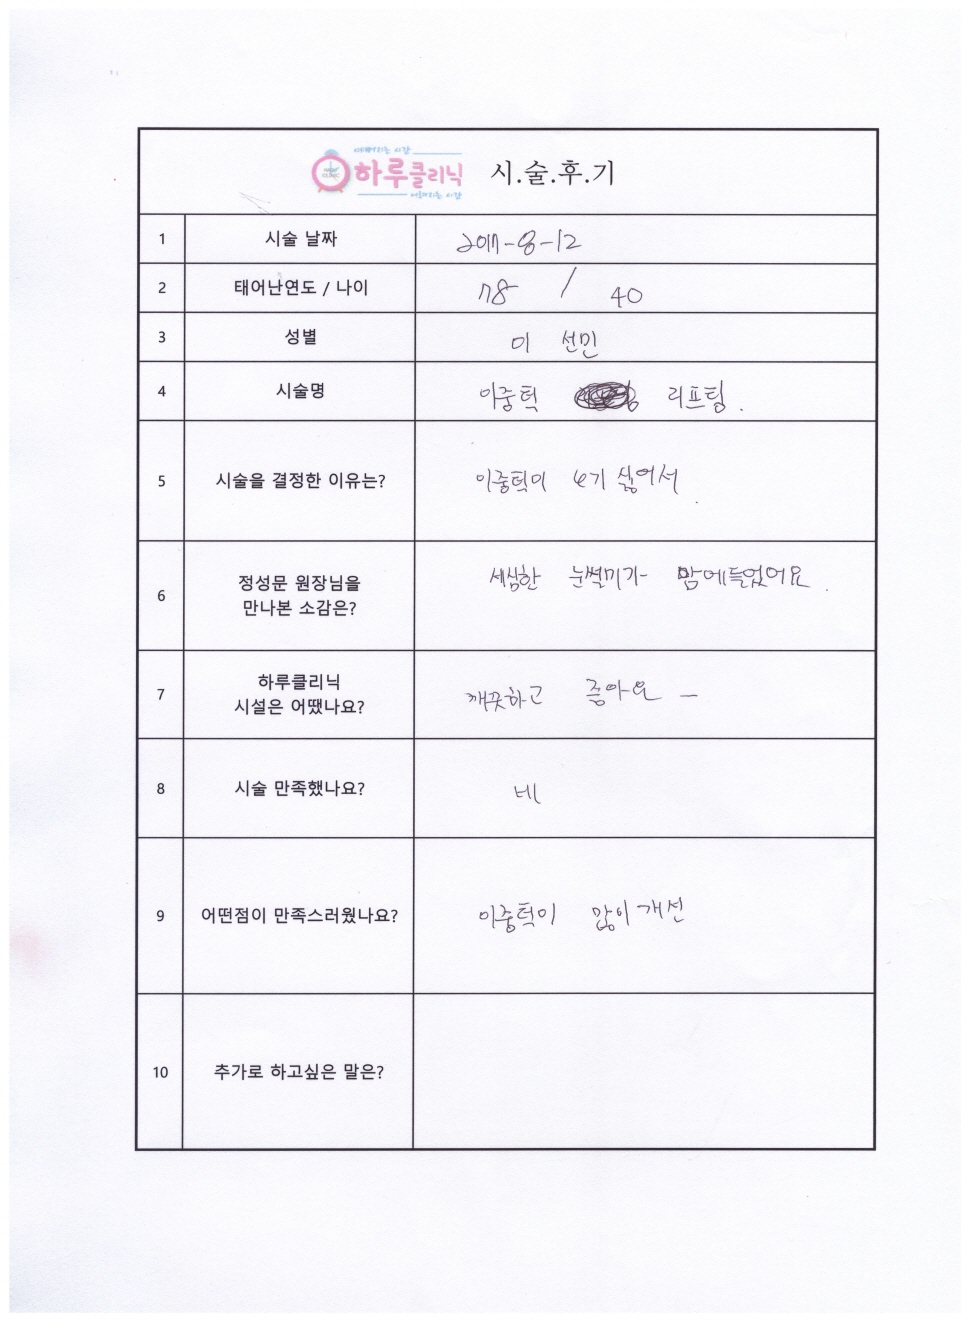 하루클리닉 시.술.후.기
1 시술 날짜 2017-8-12
2 태어난연도 / 나이 78 / 40
3 성별 이 선민
4 시술명 이중턱 리프팅.
5 시술을 결정한 이유는? 이중턱이 보기 싫어서.
6 정성문 원장님을
만나본 소감은? 세심한 눈썰미가 맘에들었어요.
7 하루클리닉
시설은 어땠나요? 깨끗하고 좋아요 -
8 시술 만족했나요? 네
9 어떤점이 만족스러웠나요? 이중턱이 많이 개선
10 추가로 하고싶은 말은?